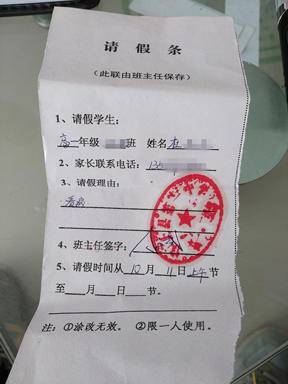 请假条
（此联由班主任保存）
1、请假学生：
高一年级 班 姓名
2、家长联系电话：13
3、请假理由：
看病
4、班主任签字：
5、请假时间从12月11日上午节
至 月 日 节。
注：①涂改无效。②限一人使用。